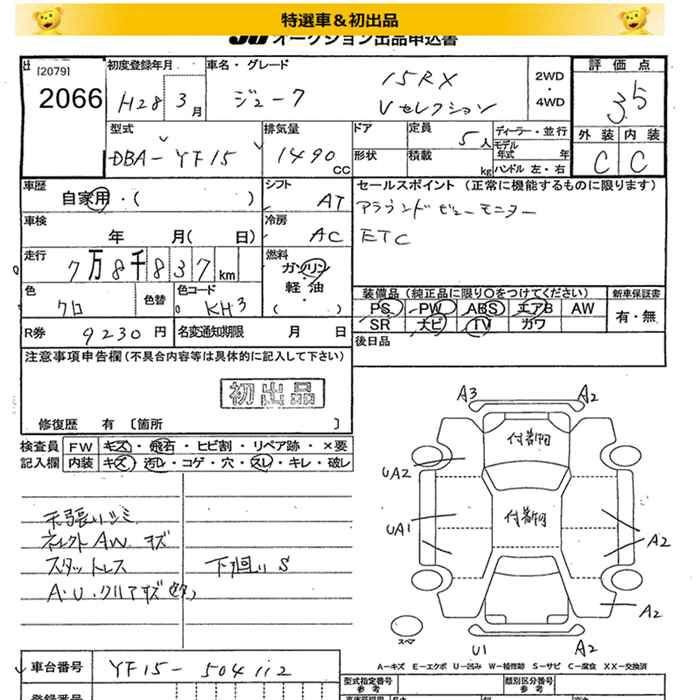 特選車＆初出品
JU オークション出品申込書
[2079]
2066
初度登録年月
H28 3月
車名・グレード
ジューク
15RX
Vセレクション
2WD
・
4WD
評価点
3.5
外装 内装
C C
型式
DBA-YF15
排気量
1490 CC
ドア
形状
定員 5人
積載 kg
ディーラー・並行
モデル年式 年
ハンドル 左・右
車歴
自家用・( )
シフト
AT
セールスポイント (正常に機能するものに限ります)
アラウンドビューモニター
ETC
車検
年 月( 日)
冷房
AC
走行
7万8千837km
燃料
ガソリン
・
軽油
( )
色
クロ
色替
色コード
KH3
装備品 (純正品に限り○をつけてください)
PS PW ABS エアB AW
SR ナビ TV カワ
新車保証書
有・無
R券 9230円
名変通知期限 月 日
後日品
注意事項申告欄 (不具合内容等は具体的に記入して下さい)
初出品
修復歴 有 [箇所 ]
検査員記入欄
FW キズ・飛石・ヒビ割・リペア跡・×要
内装 キズ・汚レ・コゲ・穴・スレ・キレ・破レ
天張りシミ
AW キズ
スタットレス
下廻り S
A3
A2
付着物
UA2
UA1
付着物
A2
A2
スペア
U1
A2
A－キズ E－エクボ U－凹み W－補修跡 S－サビ C－腐食 XX－交換済
車台番号
YF15-504112
型式指定番号
参考
類別区分番号
参考
登録番号